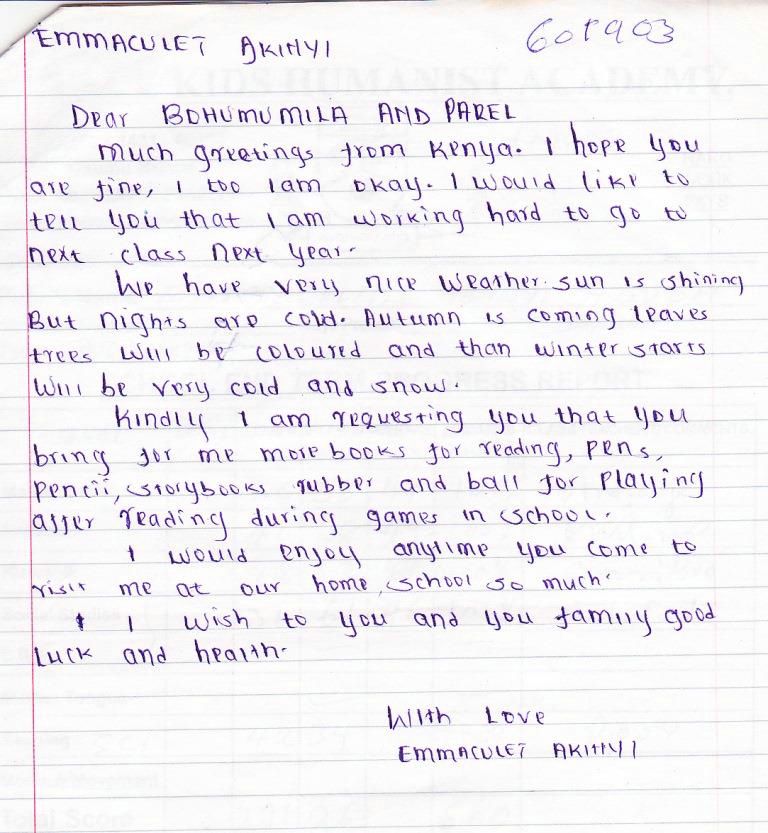 EMMACULET AKINYI
601903
Dear BOHUMUMILA AND PAREL
Much greetings from Kenya. I hope you
are fine, I too I am okay. I would like to
tell you that I am working hard to go to
next class next year.
We have very nice weather. sun is shining
But nights are cold. Autumn is coming leaves
trees will be coloured and than winter starts
Will be very cold and snow.
Kindly I am requesting you that you
bring for me more books for reading, pens,
pencil, storybooks rubber and ball for playing
after reading during games in school.
I would enjoy anytime you come to
visit me at our home, school so much.
I wish to you and you family good
Luck and health.
With Love
EMMACULET AKINYI
KIDS HUMANIST ACADEMY
PROGRESS REPORT
Social Studies
Total Score